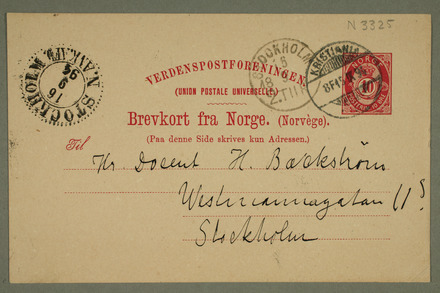 N 3325
VERDENSPOSTFORENINGEN.
(UNION POSTALE UNIVERSELLE)
Brevkort fra Norge. (Norvège).
(Paa denne Side skrives kun Adressen.)
NORGE
10
STOCKHOLM
KRISTIANIA
STOCKHOLM N.
16
9
96
Til
Hr. Docent H. Bäckström
Westmannagatan 11
Stockholm